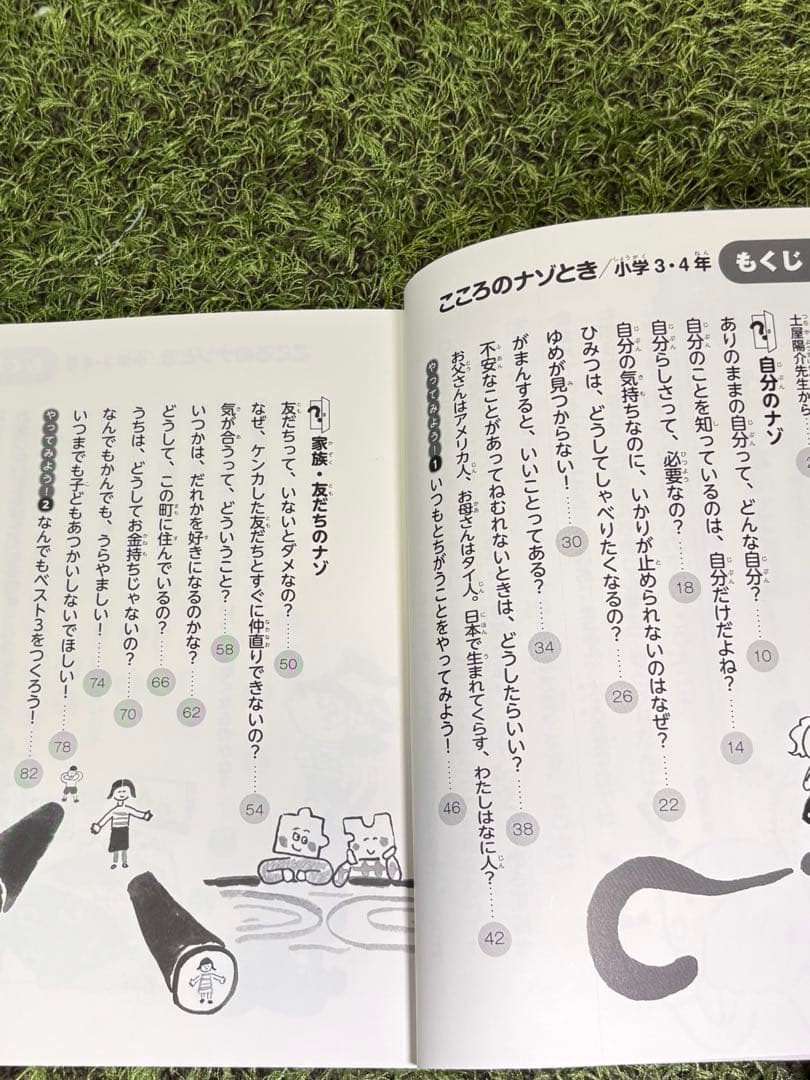 もくじ
こころのナゾとき/小学3・4年
土屋陽介先生から……
自分のナゾ
ありのままの自分って、どんな自分?……10
自分のことを知っているのは、自分だけだよね?……14
自分らしさって、必要なの?……18
自分の気持ちなのに、いかりが止められないのはなぜ?……22
ひみつは、どうしてしゃべりたくなるの?……26
ゆめが見つからない!……30
がまんすると、いいことってある?……34
不安なことがあってねむれないときは、どうしたらいい?……38
お父さんはアメリカ人、お母さんはタイ人。日本で生まれてくらす、わたしはなに人?……42
やってみよう!1 いつもとちがうことをやってみよう!……46
家族・友だちのナゾ
友だちって、いないとダメなの?……50
なぜ、ケンカした友だちとすぐに仲直りできないの?……54
気が合うって、どういうこと?……58
いつかは、だれかを好きになるのかな?……62
どうして、この町に住んでいるの?……66
うちは、どうしてお金持ちじゃないの?……70
なんでもかんでも、うらやましい!……74
いつまでも子どもあつかいしないでほしい!……78
やってみよう!2 なんでもベスト3をつくろう!……82